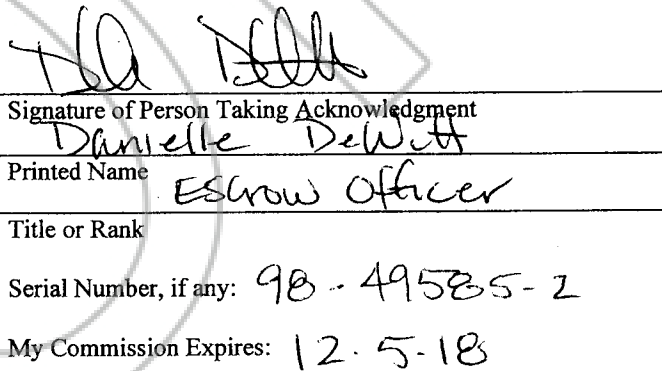 Signature of Person Taking Acknowledgment
Danielle DeWitt
Printed Name
Escrow Officer
Title or Rank
Serial Number, if any: 98-49585-2
My Commission Expires: 12.5.18